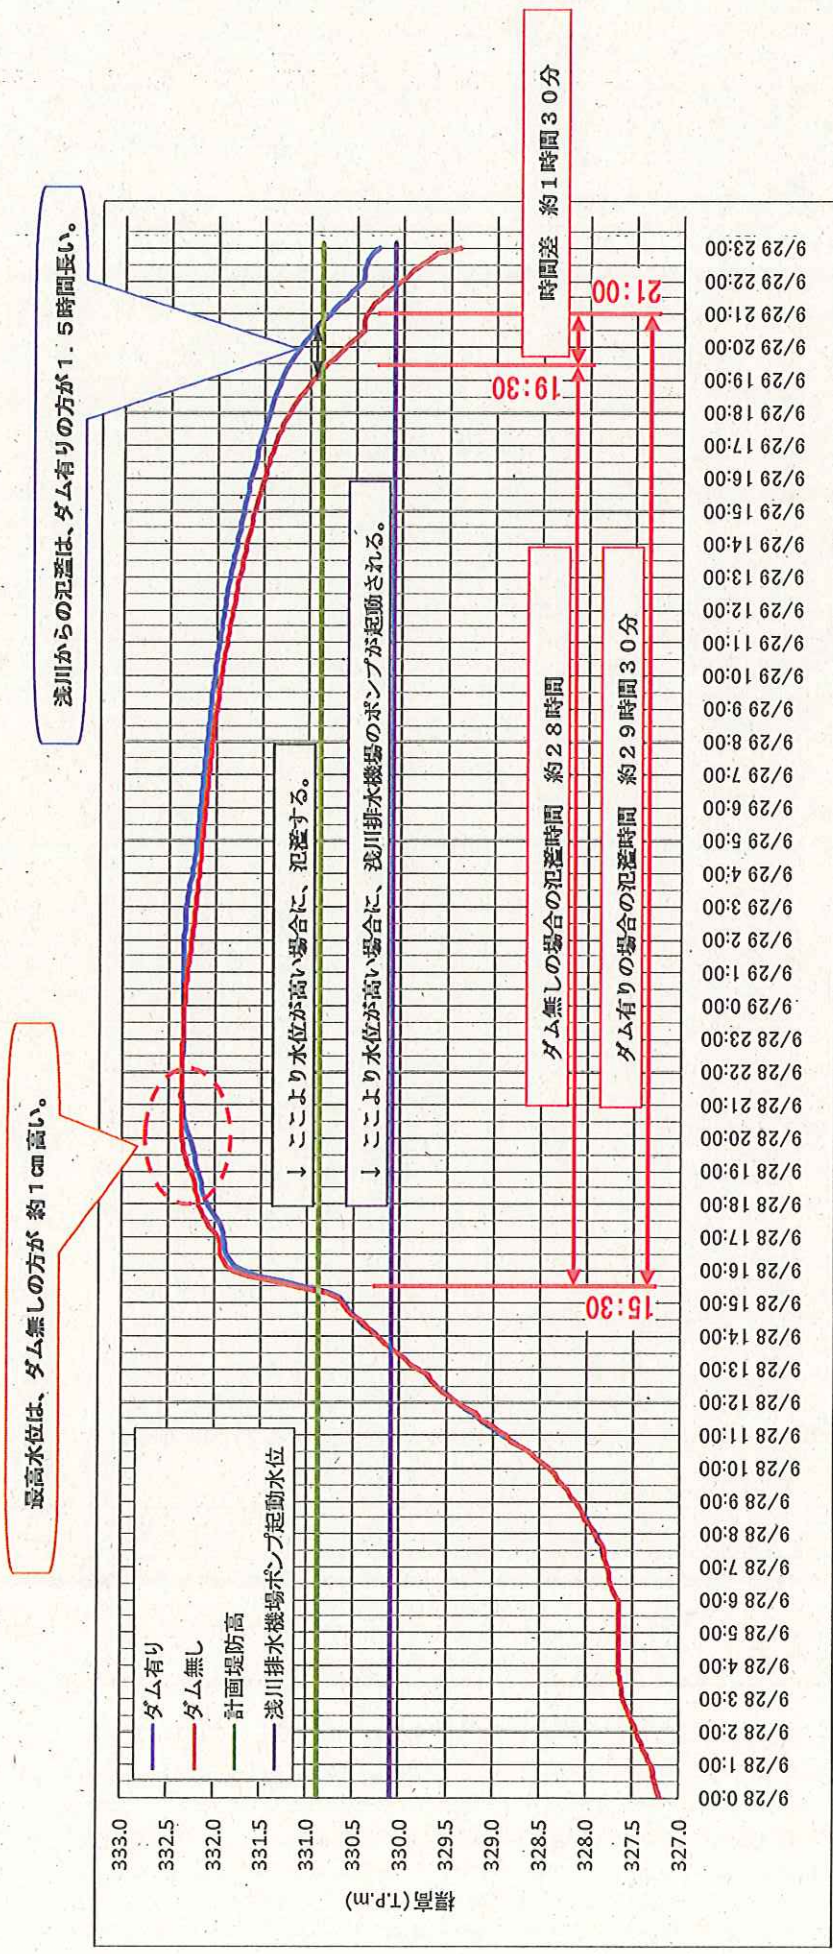 最高水位は、ダム無しの方が 約1㎝高い。
浅川からの氾濫は、ダム有りの方が1.5時間長い。
ダム有り
ダム無し
計画堤防高
浅川排水機場ポンプ起動水位
↓ ここより水位が高い場合に、氾濫する。
↓ ここより水位が高い場合に、浅川排水機場のポンプが起動される。
標高(T.P.m)
333.0
332.5
332.0
331.5
331.0
330.5
330.0
329.5
329.0
328.5
328.0
327.5
327.0
15:30
19:30
21:00
ダム無しの場合の氾濫時間 約28時間
ダム有りの場合の氾濫時間 約29時間30分
時間差 約1時間30分
9/28 0:00
9/28 1:00
9/28 2:00
9/28 3:00
9/28 4:00
9/28 5:00
9/28 6:00
9/28 7:00
9/28 8:00
9/28 9:00
9/28 10:00
9/28 11:00
9/28 12:00
9/28 13:00
9/28 14:00
9/28 15:00
9/28 16:00
9/28 17:00
9/28 18:00
9/28 19:00
9/28 20:00
9/28 21:00
9/28 22:00
9/28 23:00
9/29 0:00
9/29 1:00
9/29 2:00
9/29 3:00
9/29 4:00
9/29 5:00
9/29 6:00
9/29 7:00
9/29 8:00
9/29 9:00
9/29 10:00
9/29 11:00
9/29 12:00
9/29 13:00
9/29 14:00
9/29 15:00
9/29 16:00
9/29 17:00
9/29 18:00
9/29 19:00
9/29 20:00
9/29 21:00
9/29 22:00
9/29 23:00